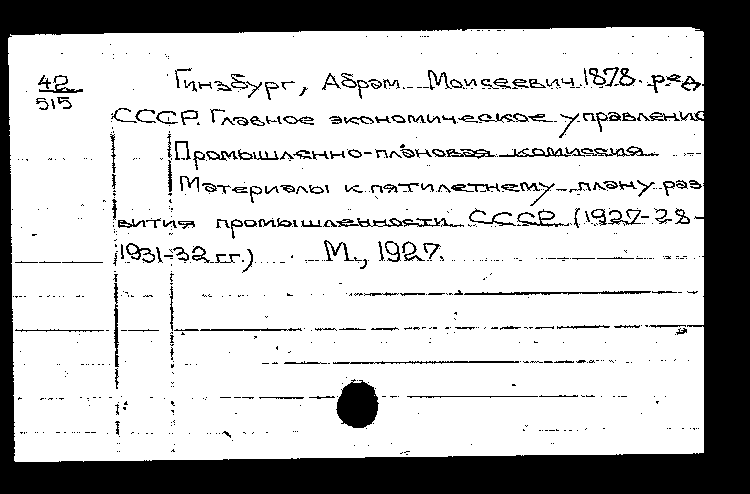 42
515
Гинзбург, Абрам Моисеевич 1878. ред.
СССР. Главное экономическое управление
Промышленно-плановая комиссия
Материалы к пятилетнему плану раз-
вития промышленности СССР (1927-28-
1931-32 гг.) М., 1927.